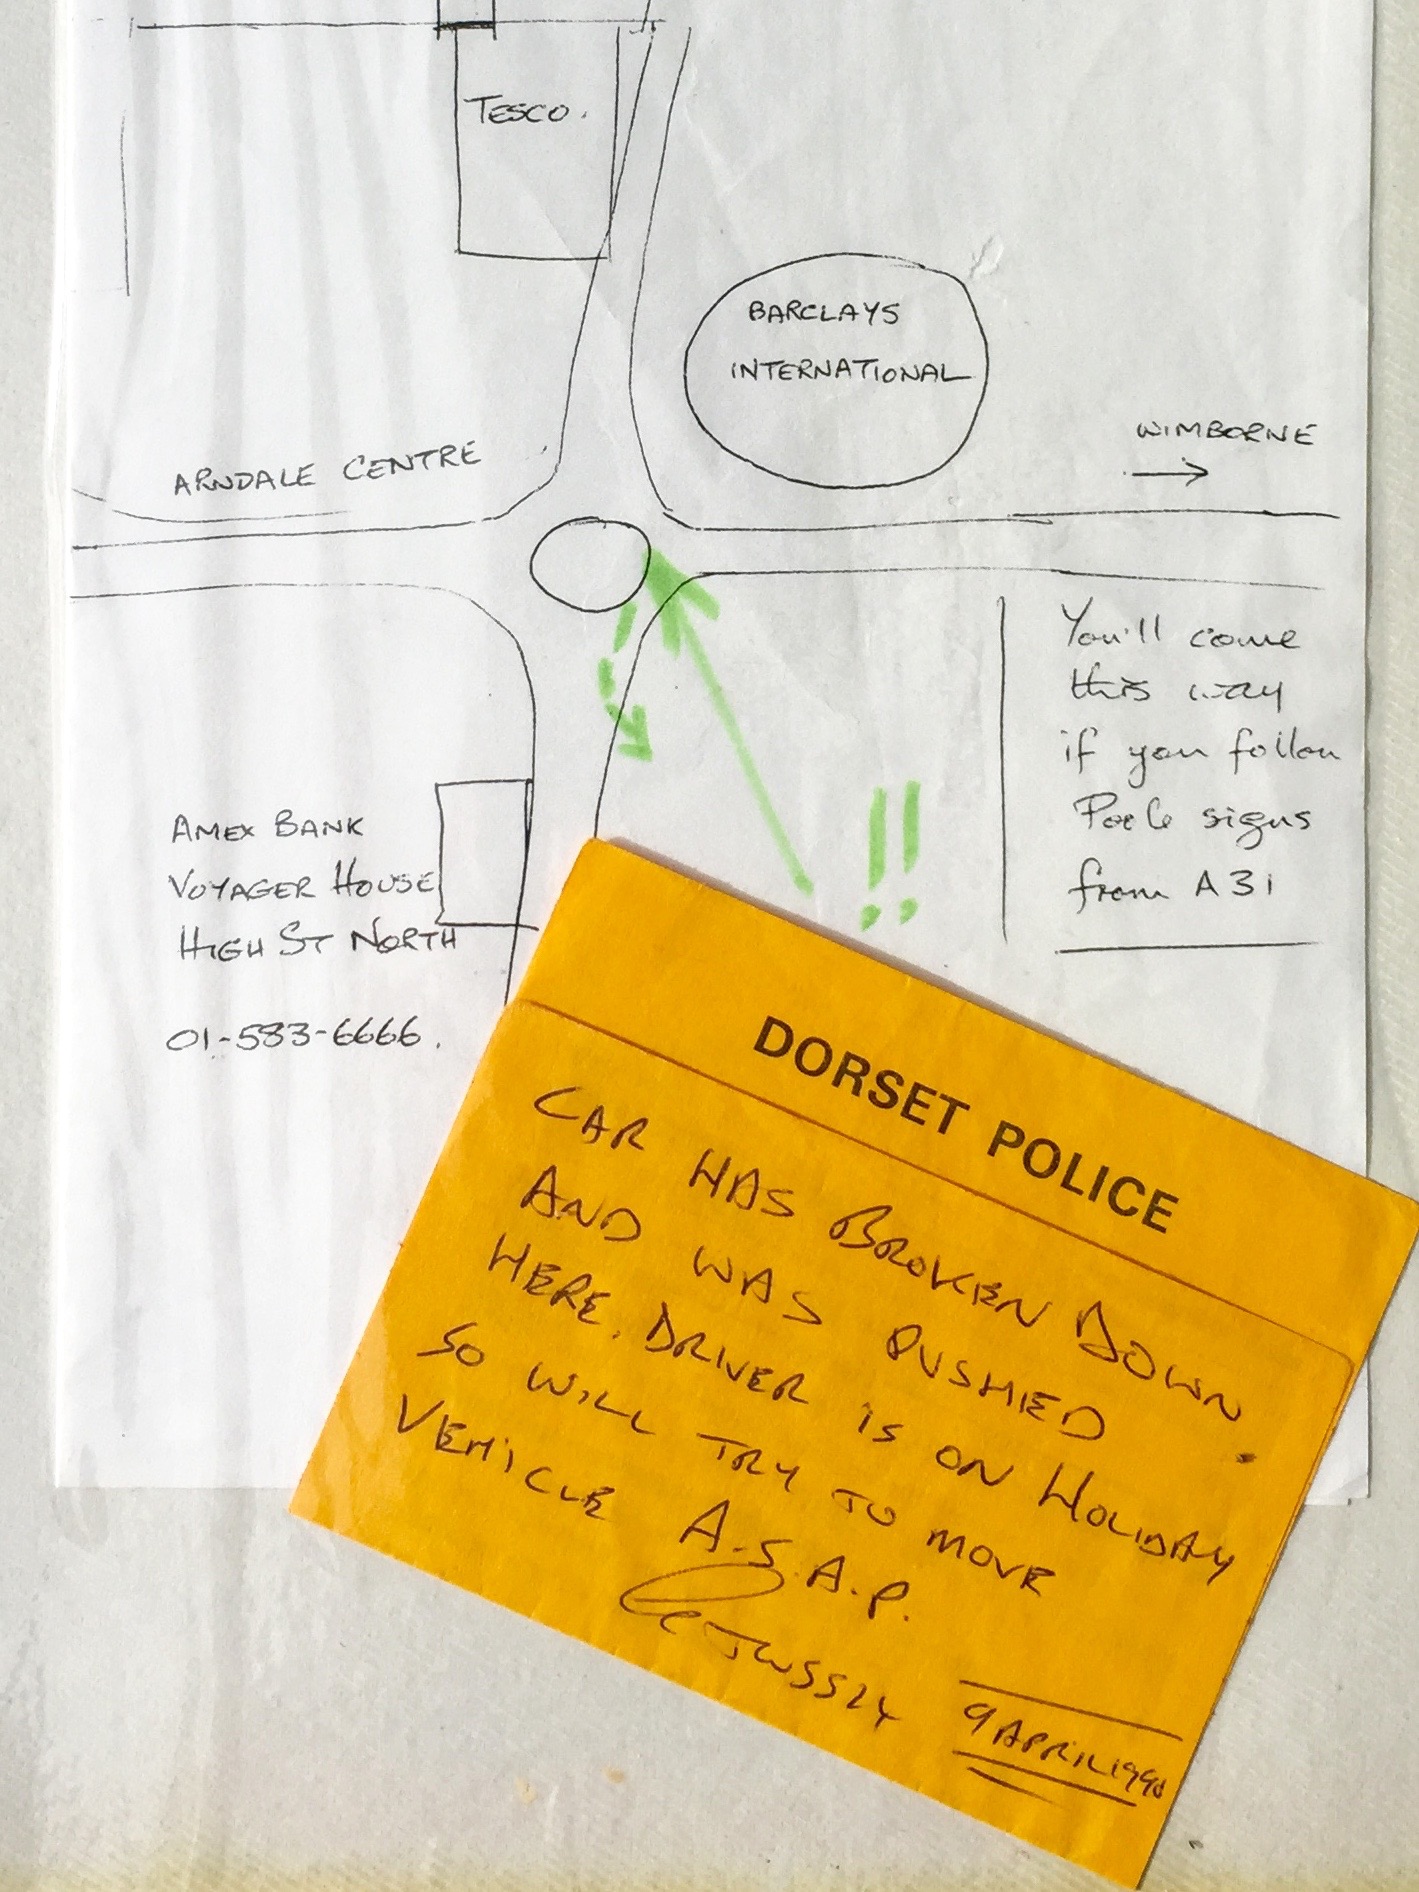 TESCO.
BARCLAYS
INTERNATIONAL
WIMBORNE
ARNDALE CENTRE
You'll come
this way
if you follow
Poole signs
from A31
!!
AMEX BANK
VOYAGER HOUSE
HIGH ST NORTH
01-583-6666.
DORSET POLICE
CAR HAS BROKEN DOWN
AND WAS PUSHED
HERE. DRIVER IS ON HOLIDAY
SO WILL TRY TO MOVE
VEHICLE A.S.A.P.
9 APRIL 1990